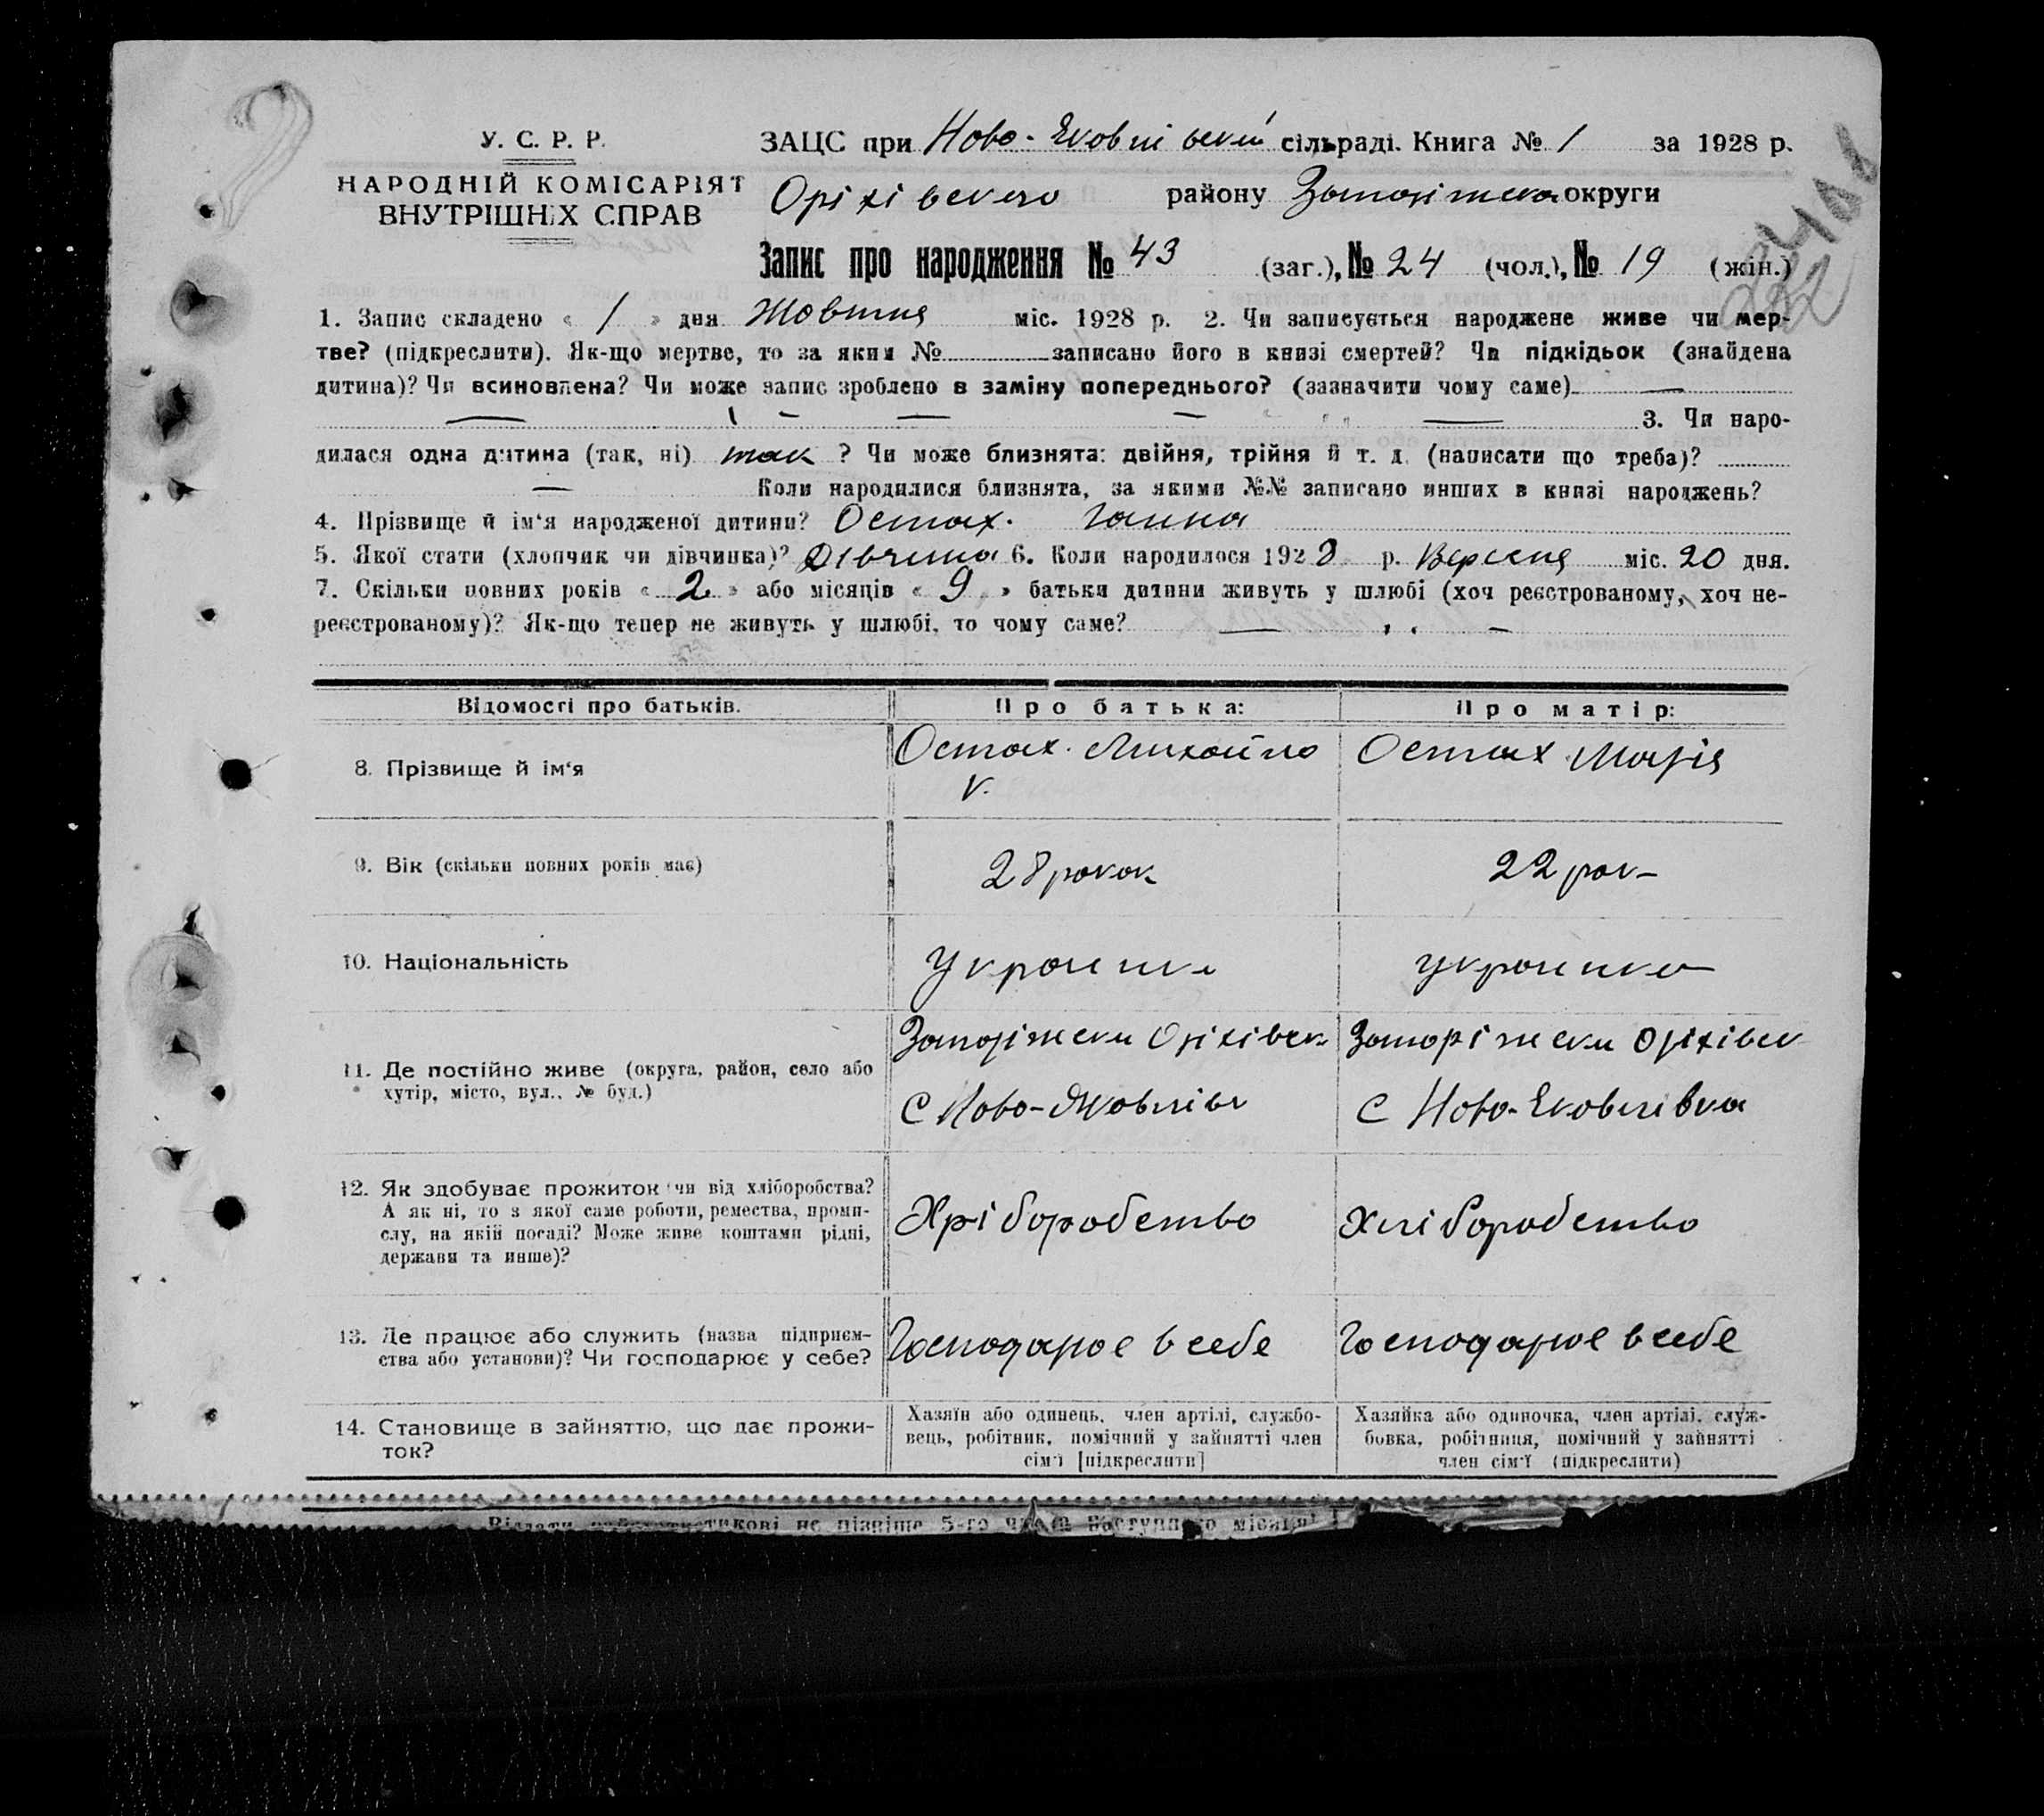 У. С. Р. Р.
НАРОДНІЙ КОМІСАРІЯТ
ВНУТРІШНІХ СПРАВ
ЗАЦС при Ново-Яковлівській сільраді. Книга № 1 за 1928 р.
Оріхівского району Запоріжська округи
Запис про народження № 43 (заг.), № 24 (чол.), № 19 (жін.)
1. Запис складено « 1 » дня Жовтня міс. 1928 р. 2. Чи записується народжене живе чи мер-
тве? (підкреслити). Як-що мертве, то за яким № записано його в книзі смертей? Чи підкідьок (знайдена
дитина)? Чи всиновлена? Чи може запис зроблено в заміну попереднього? (зазначити чому саме) —
— — — — — 3. Чи наро-
дилася одна дитина (так, ні) так ? Чи може близнята: двійня, трійня й т. д. (написати що треба)?
— Коли народилися близнята, за якими №№ записано инших в книзі народжень?
4. Прізвище й ім‘я народженої дитини? Остах. Ганна
5. Якої стати (хлопчик чи дівчинка)? Дівчина 6. Коли народилося 1928 р. Вересня міс. 20 дня.
7. Скільки повних років « 2 » або місяців « 9 » батьки дитини живуть у шлюбі (хоч реєстрованому, хоч не-
реєстрованому)? Як-що тепер не живуть у шлюбі, то чому саме? — —
Відомості про батьків. Про батька: Про матір:
8. Прізвище й ім‘я
Остах. Михайло
V.
Остах Марія
9. Вік (скільки повних років має)
28 рокок
22 рок
10. Національність
Україн
українка
11. Де постійно живе (округа, район, село або
хутір, місто, вул., № буд.)
Запоріжски Оріхівск
С Ново-Яковлівк
Запоріжски Оріхівск
С Ново-Яковлівка
12. Як здобуває прожиток чи від хліборобства?
А як ні, то з якої саме роботи, ремества, проми-
слу, на якій посаді? Може живе коштами рідні,
держави та инше)?
Хріборобство
Хліборобство
13. Де працює або служить (назва підприєм-
ства або установи)? Чи господарює у себе?
Господарює в себе
Господарює в себе
14. Становище в зайняттю, що дає прожи-
ток?
Хазяїн або одинець, член артілі, службо-
вець, робітник, помічний у зайнятті член
сім‘ї [підкреслити]
Хазяйка або одиночка, член артілі, служ-
бовка, робітниця, помічний у зайнятті
член сім‘ї (підкреслити)
не пізніше 5-го числа наступного місяця!